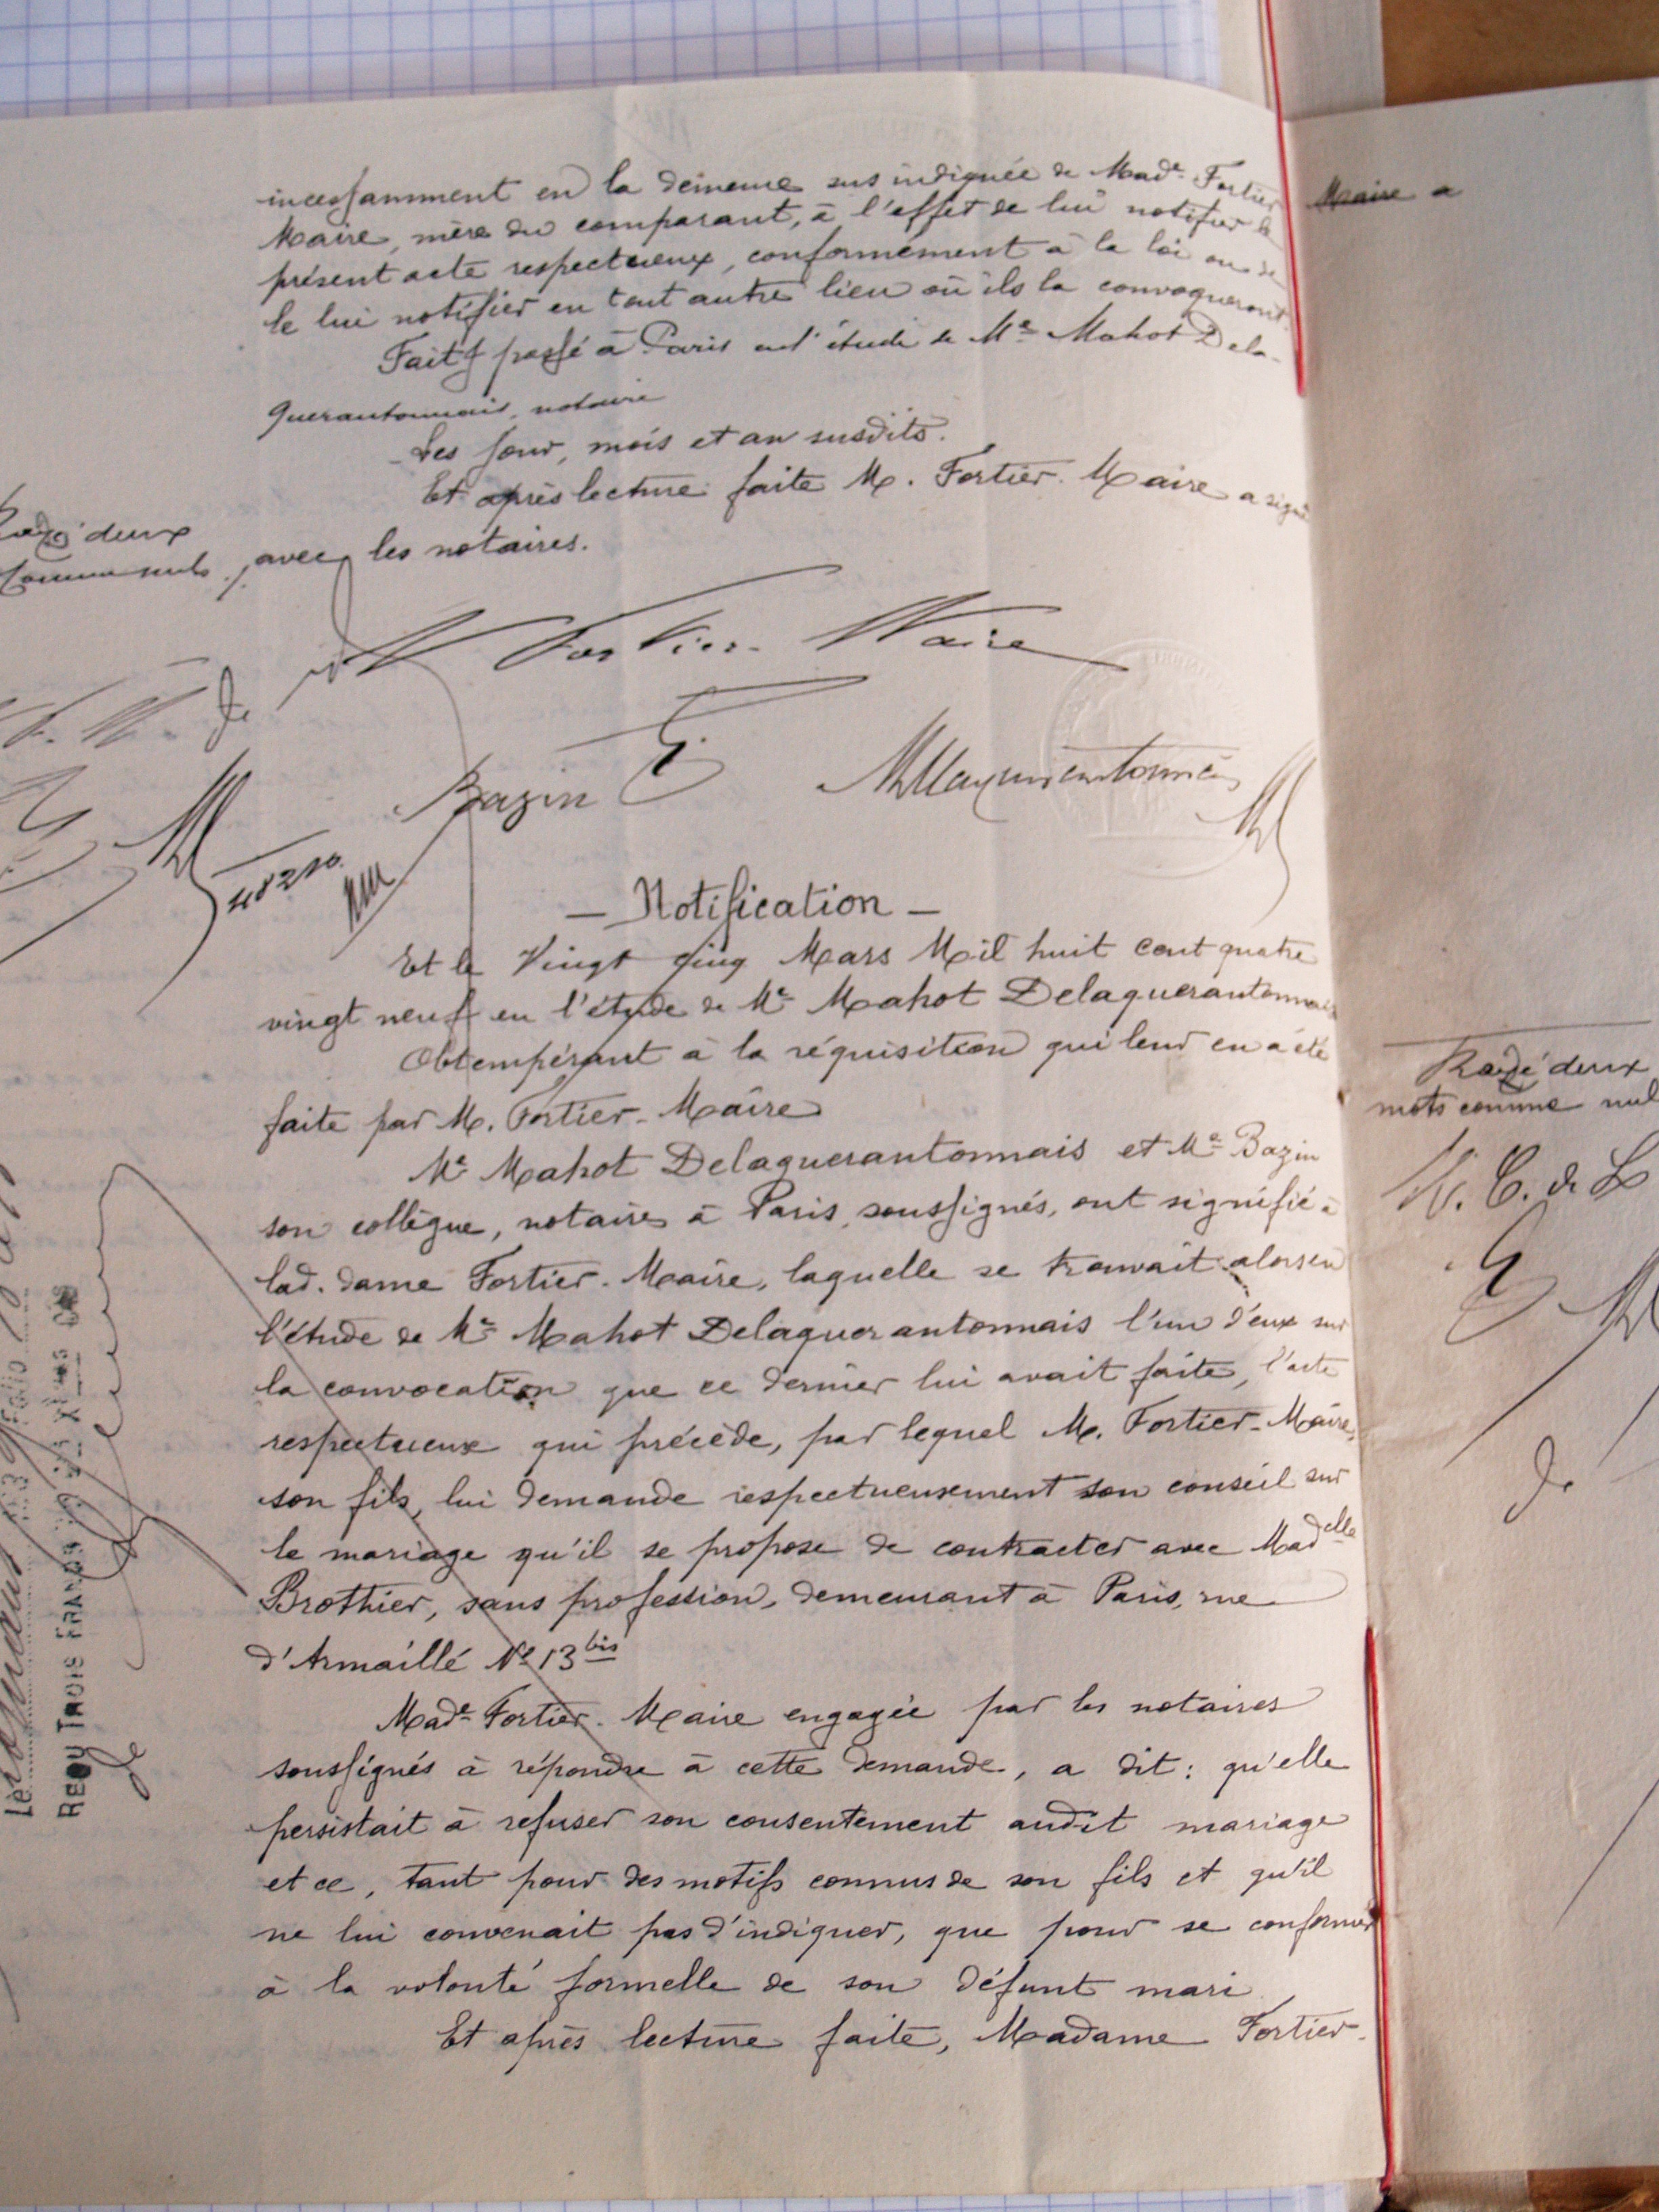 incessamment en la demeure sus indiquée de Made Fortier
Maire, mère du comparant, à l'effet de lui notifier le
présent acte respectueux, conformément à la loi ou de
le lui notifier en tout autre lieu où ils la convoqueront.
Fait & passé à Paris en l'étude de Me Mahot Dela-
querantonnais, notaire
Les jour, mois et an susdits.
Et après lecture faite M. Fortier-Maire a signé
avec les notaires.
Rayé deux
comme nuls
Fortier-Maire
Bazin
— Notification —
Et le Vingt cinq Mars Mil huit cent quatre
vingt neuf en l'étude de Me Mahot Delaquerantonnais
Obtempérant à la réquisition qui leur en a été
faite par M. Fortier-Maire
Me Mahot Delaquerantonnais et Me Bazin
son collègue, notaires à Paris, soussignés, ont signifié à
lad. dame Fortier-Maire, laquelle se trouvait alors en
l'étude de Me Mahot Delaquerantonnais l'un d'eux sur
la convocation que ce dernier lui avait faite, l'acte
respectueux qui précède, par lequel M. Fortier-Maire,
son fils, lui demande respectueusement son conseil sur
le mariage qu'il se propose de contracter avec Madelle
Brothier, sans profession, demeurant à Paris, rue
d'Armaillé No 13 bis
Made Fortier-Maire engagée par les notaires
soussignés à répondre à cette demande, a dit: qu'elle
persistait à refuser son consentement audit mariage
et ce, tant pour des motifs connus de son fils et qu'il
ne lui convenait pas d'indiquer, que pour se conformer
à la volonté formelle de son défunt mari
Et après lecture faite, Madame Fortier-
REÇU TROIS FRANCS
Maire a
Rayé deux
mots comme nul